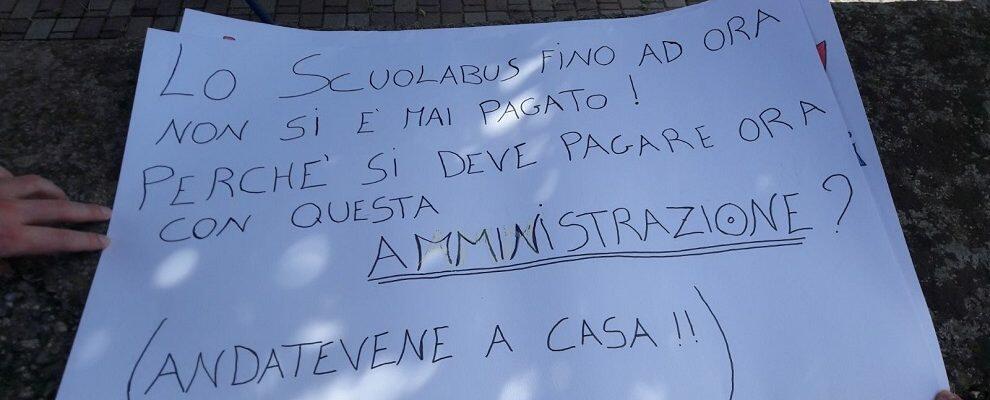 LO SCUOLABUS FINO AD ORA
NON SI E' MAI PAGATO !
PERCHE' SI DEVE PAGARE ORA
CON QUESTA
AMMINISTRAZIONE ?
(ANDATEVENE A CASA !!)